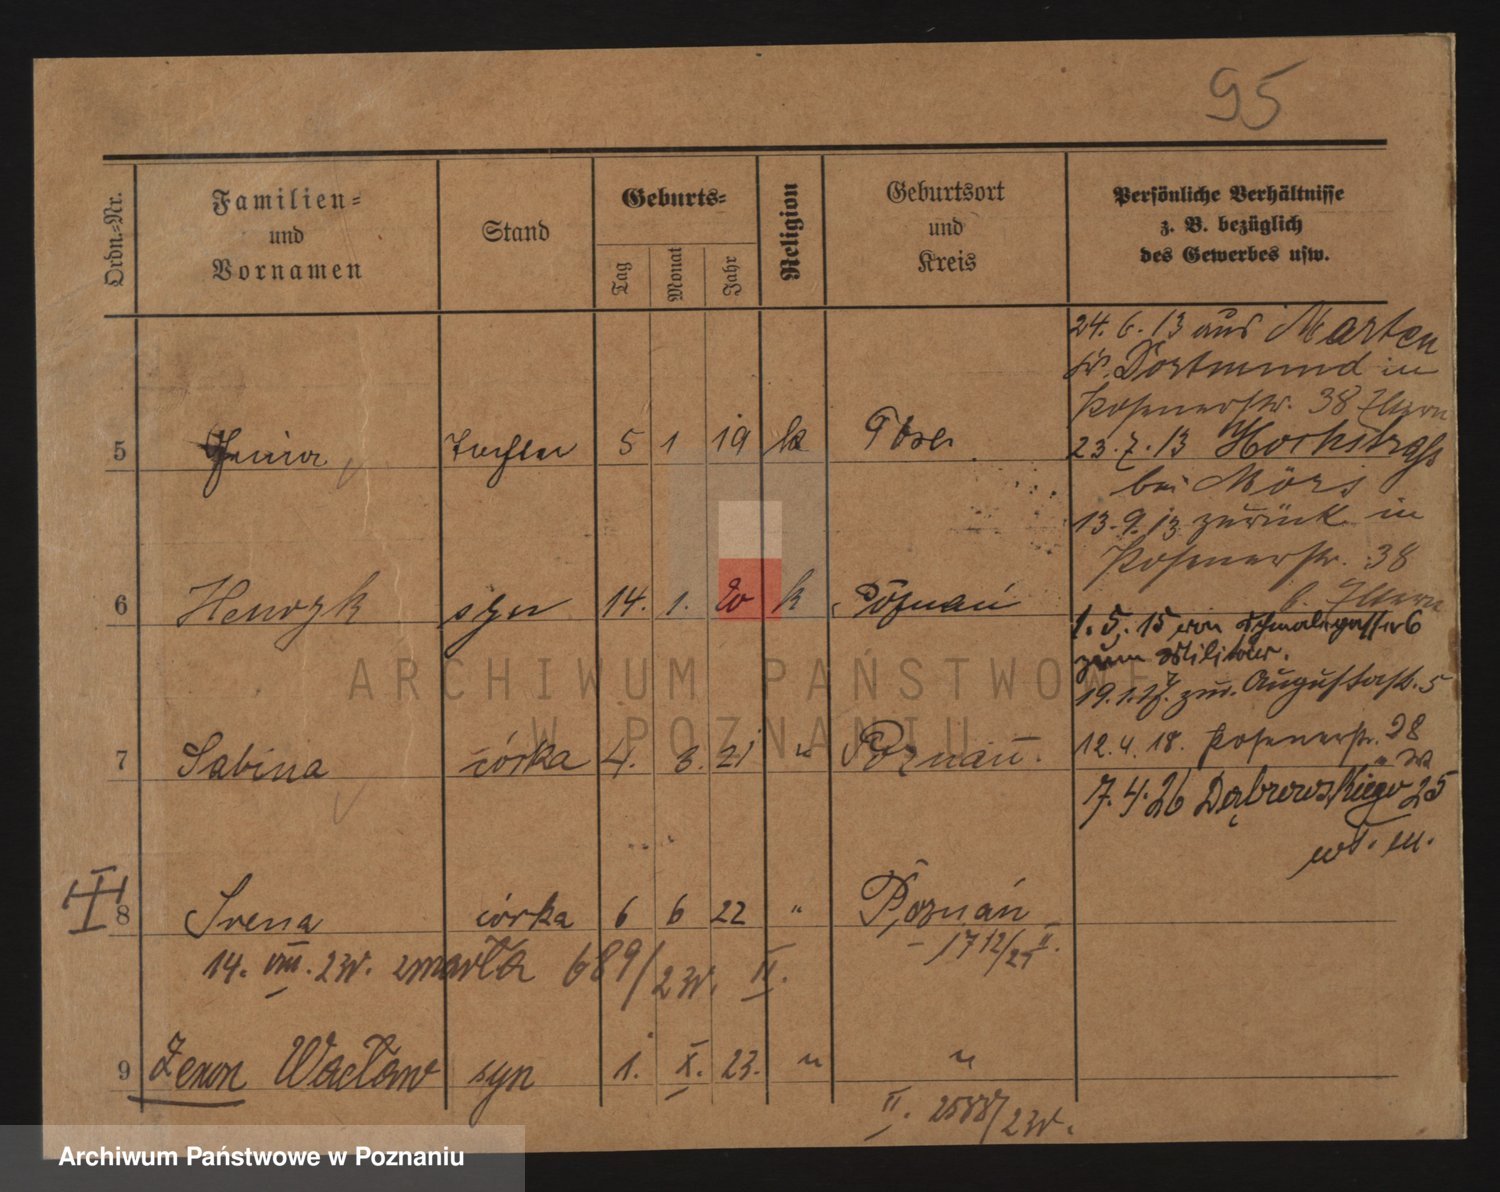 95
Ordn.-Nr.
Familien-
und
Vornamen
Stand
Geburts-
Tag
Monat
Jahr
Religion
Geburtsort
und
Kreis
Persönliche Verhältnisse
z. B. bezüglich
des Gewerbes usw.
24. 6. 13 aus Marten
Dortmund in
Posenerstr. 38
23. 7. 13
bei Mörs
13. 9. 13 zurück in
Posenerstr. 38
1. 5. 15 von
zum Militär.
19. 1. 17. Augustastr. 5
12. 4. 18. Posenerstr. 28
7. 4. 26 Dąbrowskiego 25
wł. m.
5 Tochter 5 1 19 k
6 Henryk syn 14. 1. 20 k Poznań
7 Sabina córka 4. 3. 21 " Poznań.
8 Irena córka 6 6 22 " Poznań
1712/22 II.
14. VIII. 23r. zmarła 689/23r. II.
9 Zenon Wacław syn 1. X. 23. " "
II. 2588/23r.
ARCHIWUM PAŃSTWOWE
W POZNANIU
Archiwum Państwowe w Poznaniu